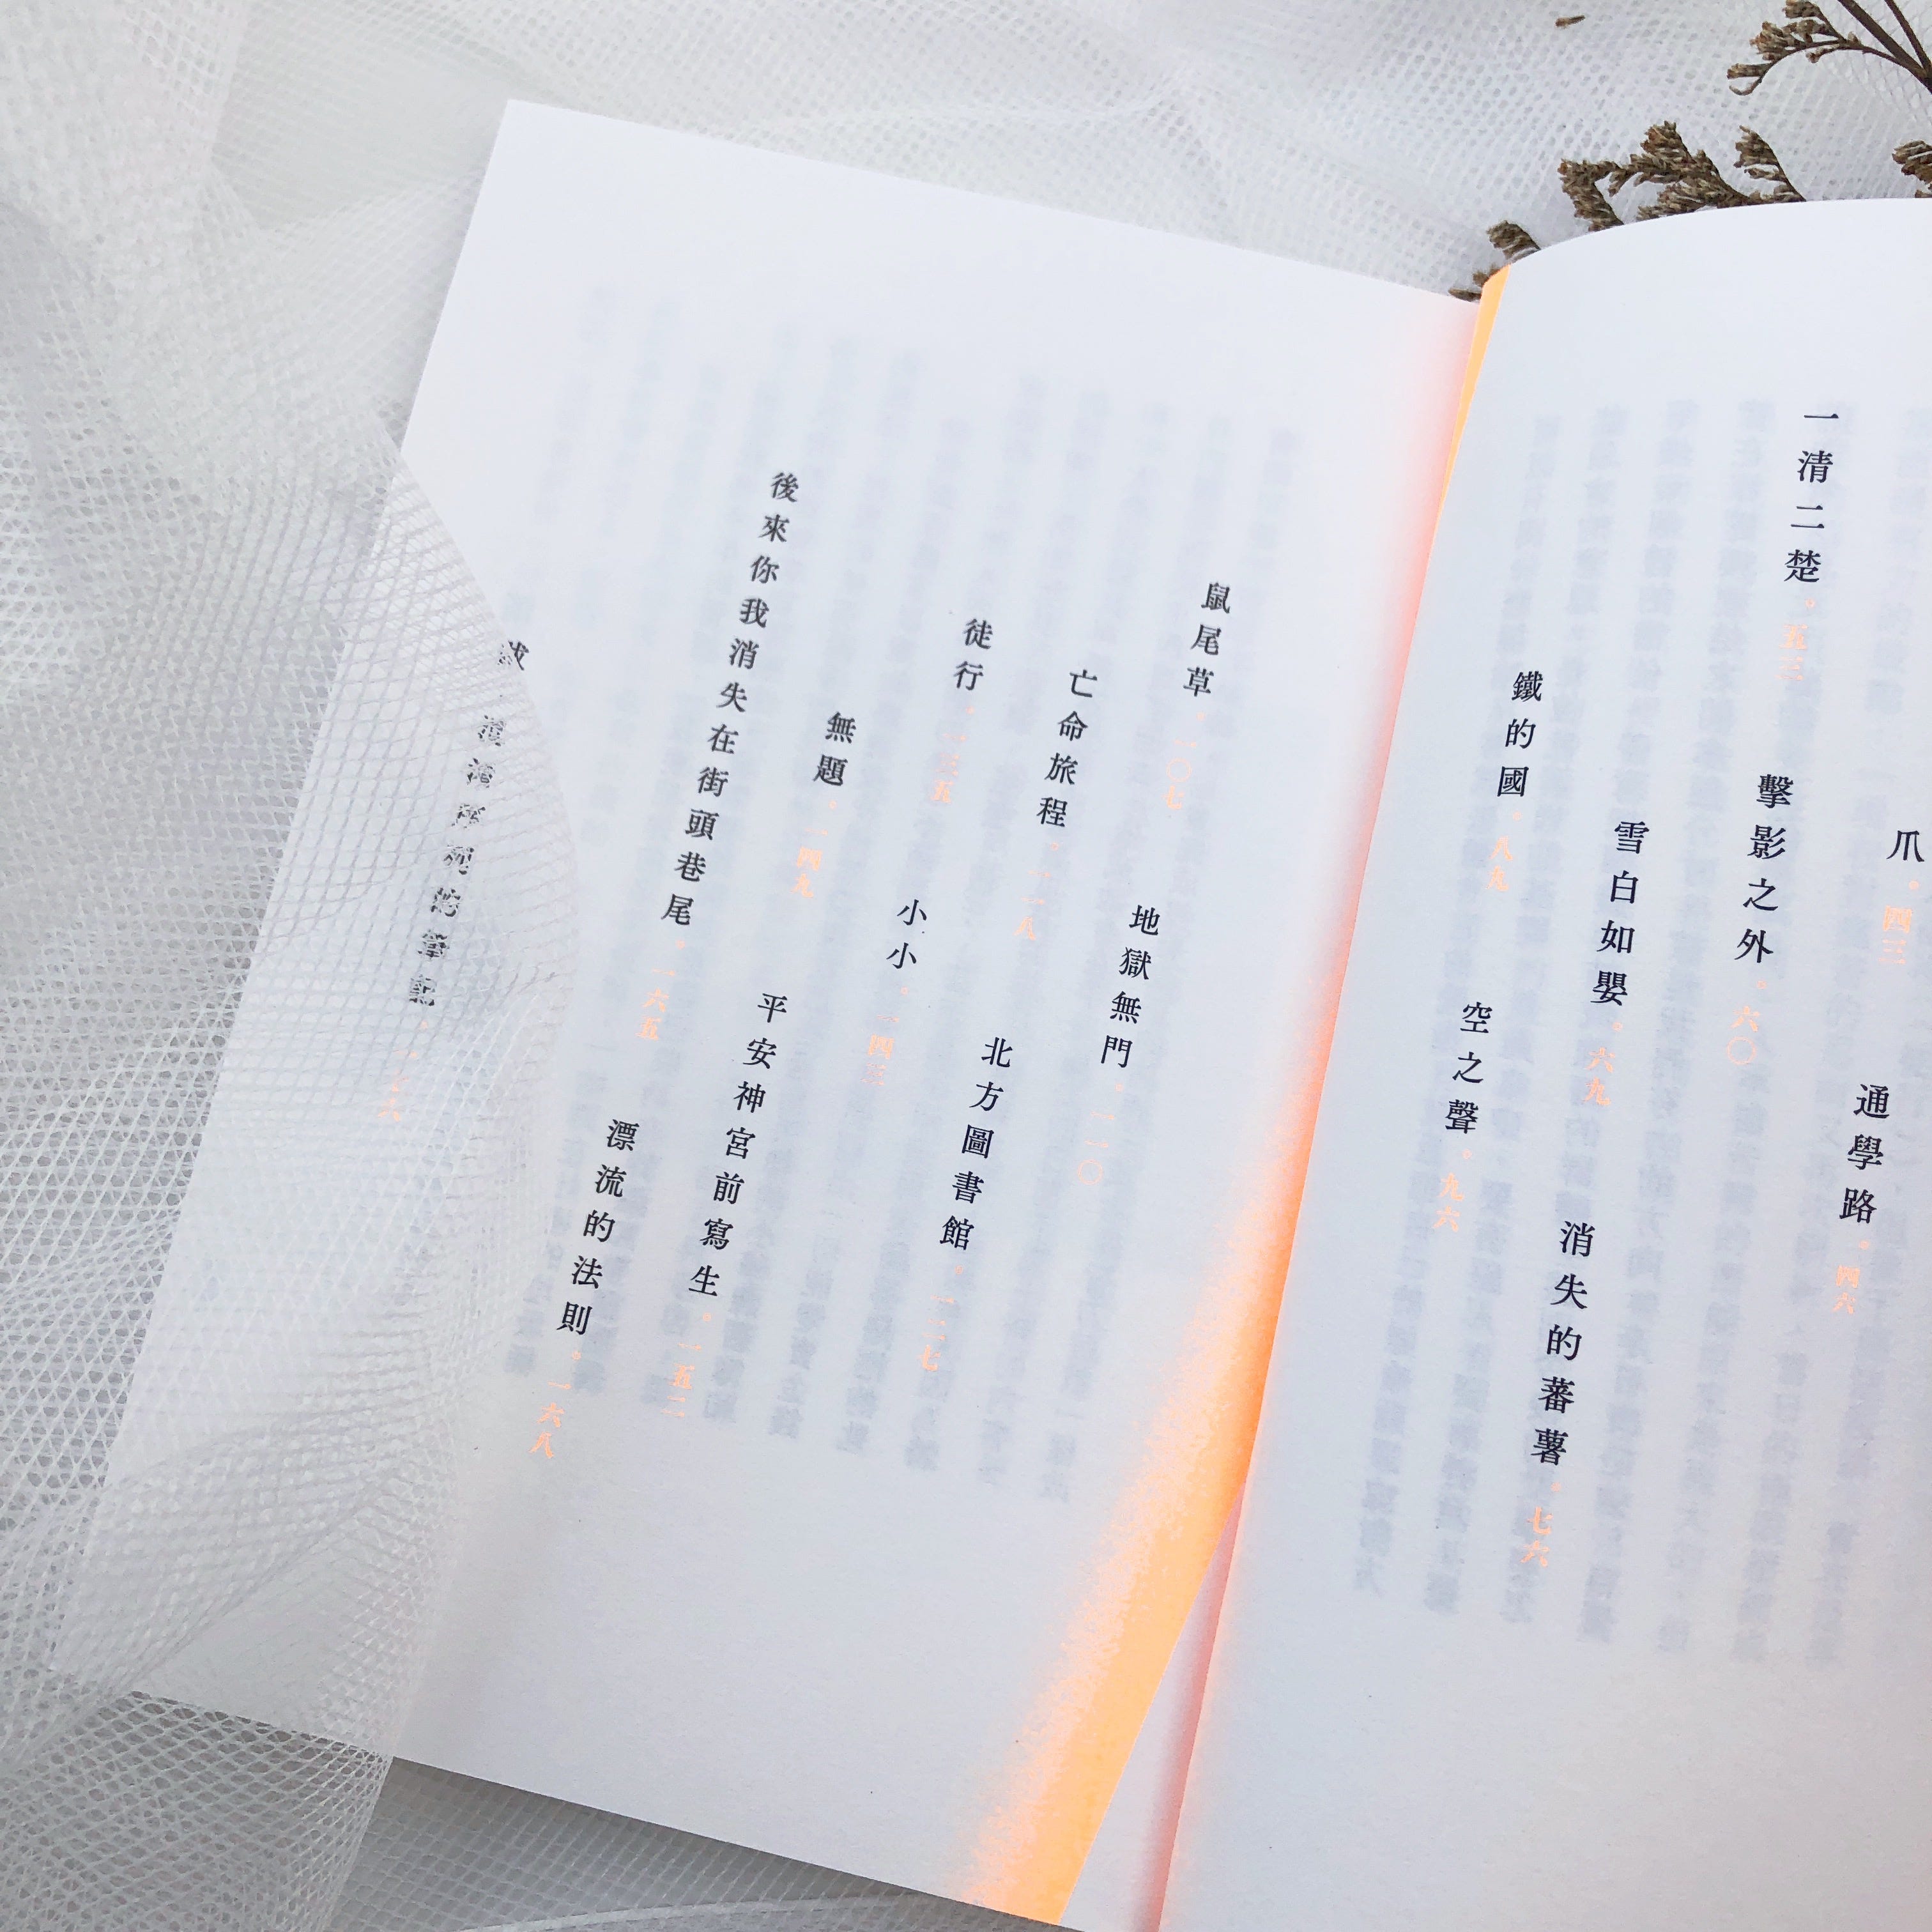 爪。四三
通學路。四六
一清二楚。五三
擊影之外。六〇
雪白如嬰。六九
消失的蕃薯。七六
鐵的國。八九
空之聲。九六
鼠尾草。一〇七
地獄無門。一一〇
亡命旅程。一一八
北方圖書館。一二七
徒行。一三五
小小。一四三
無題。一四九
平安神宮前寫生。一五二
後來你我消失在街頭巷尾。一六五
漂流的法則。一六八
的筆記。